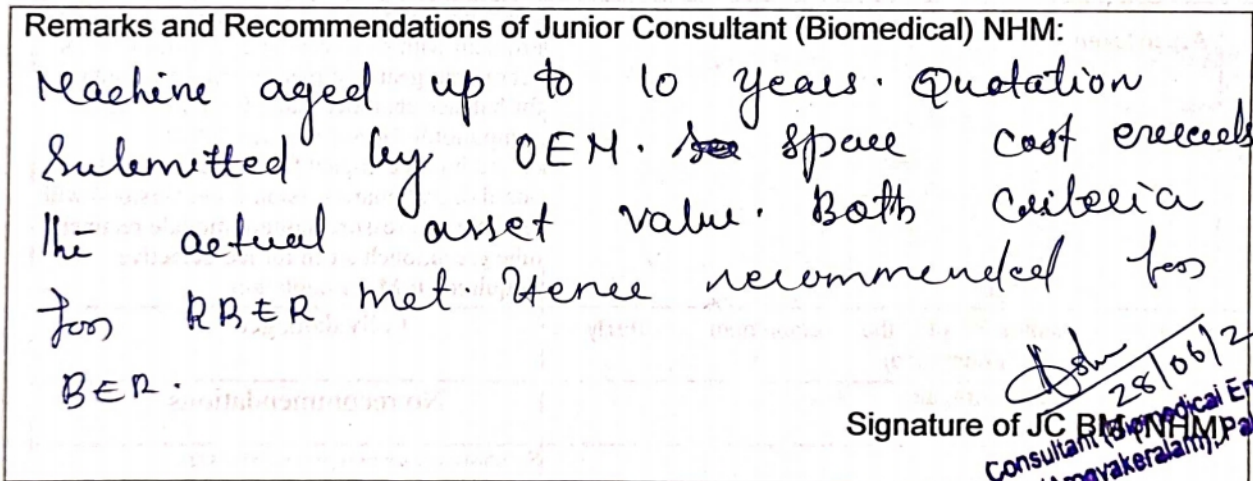 Remarks and Recommendations of Junior Consultant (Biomedical) NHM:
Machine aged up to 10 years. Quotation
Submitted by OEM. spare cost exceeds
the actual asset value. Both Criteria
for RBER met Hence recommended for
BER.
28/06/2
Signature of JC BM, NHM, Pal
Consultant (Biomedical En
(Arogyakeralam),
No recommendations